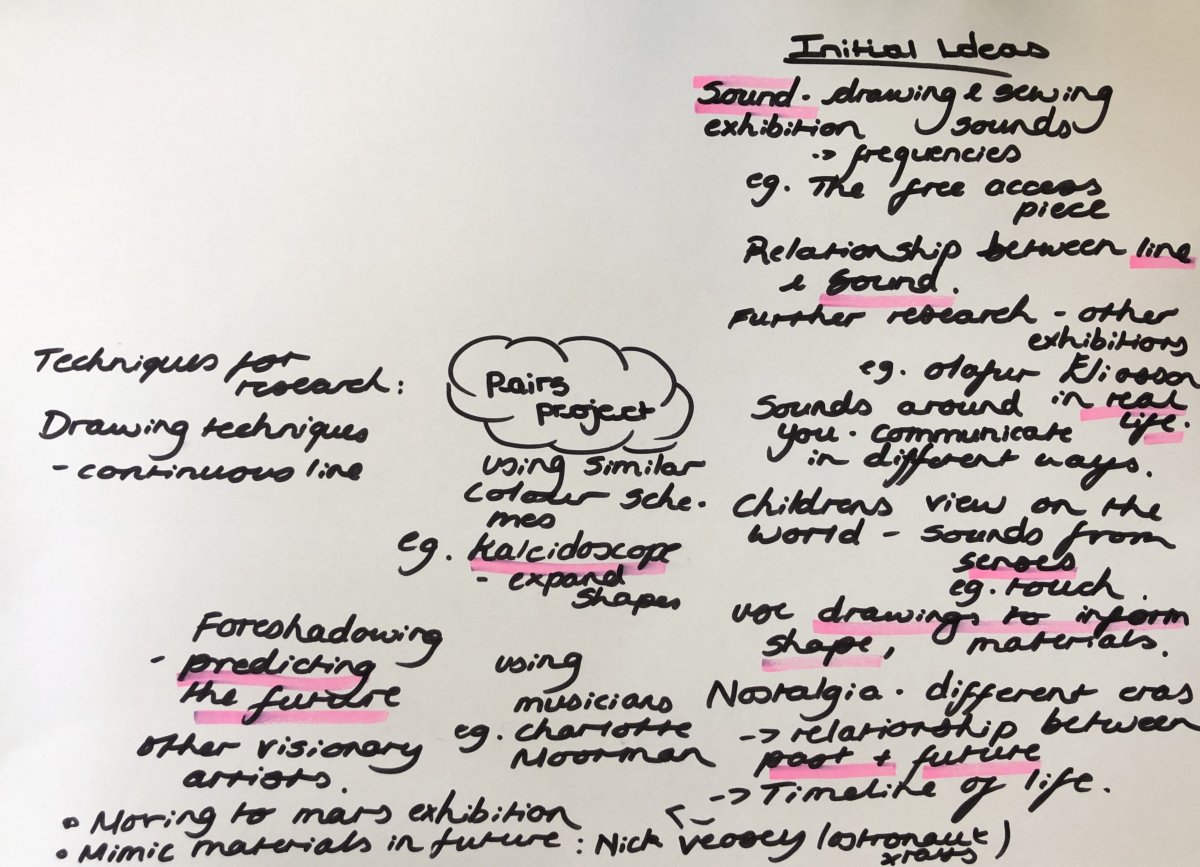 Initial Ideas
Sound. drawing & sewing
exhibition sounds
-> frequencies
eg. The free access
piece
Relationship between line
& sound.
Further research - other
exhibitions
eg. Olafur Eliasson
Sounds around in real
you. communicate life.
in different ways.
Childrens view on the
world - sounds from
senses
eg. touch.
use drawings to inform
shape, materials.
Nostalgia. different eras
-> relationship between
past + future
-> Timeline of life.
Pairs
project
using similar
colour sche.
mes
eg. Kaleidoscope
- expand
shapes
using
musicians
eg. charlotte
Moorman
Techniques for
research:
Drawing techniques
- continuous line
Foreshadowing
- predicting
the future
other visionary
artists.
• Moving to mars exhibition
• Mimic materials in future : Nick Veasey (astronaut
xrays)